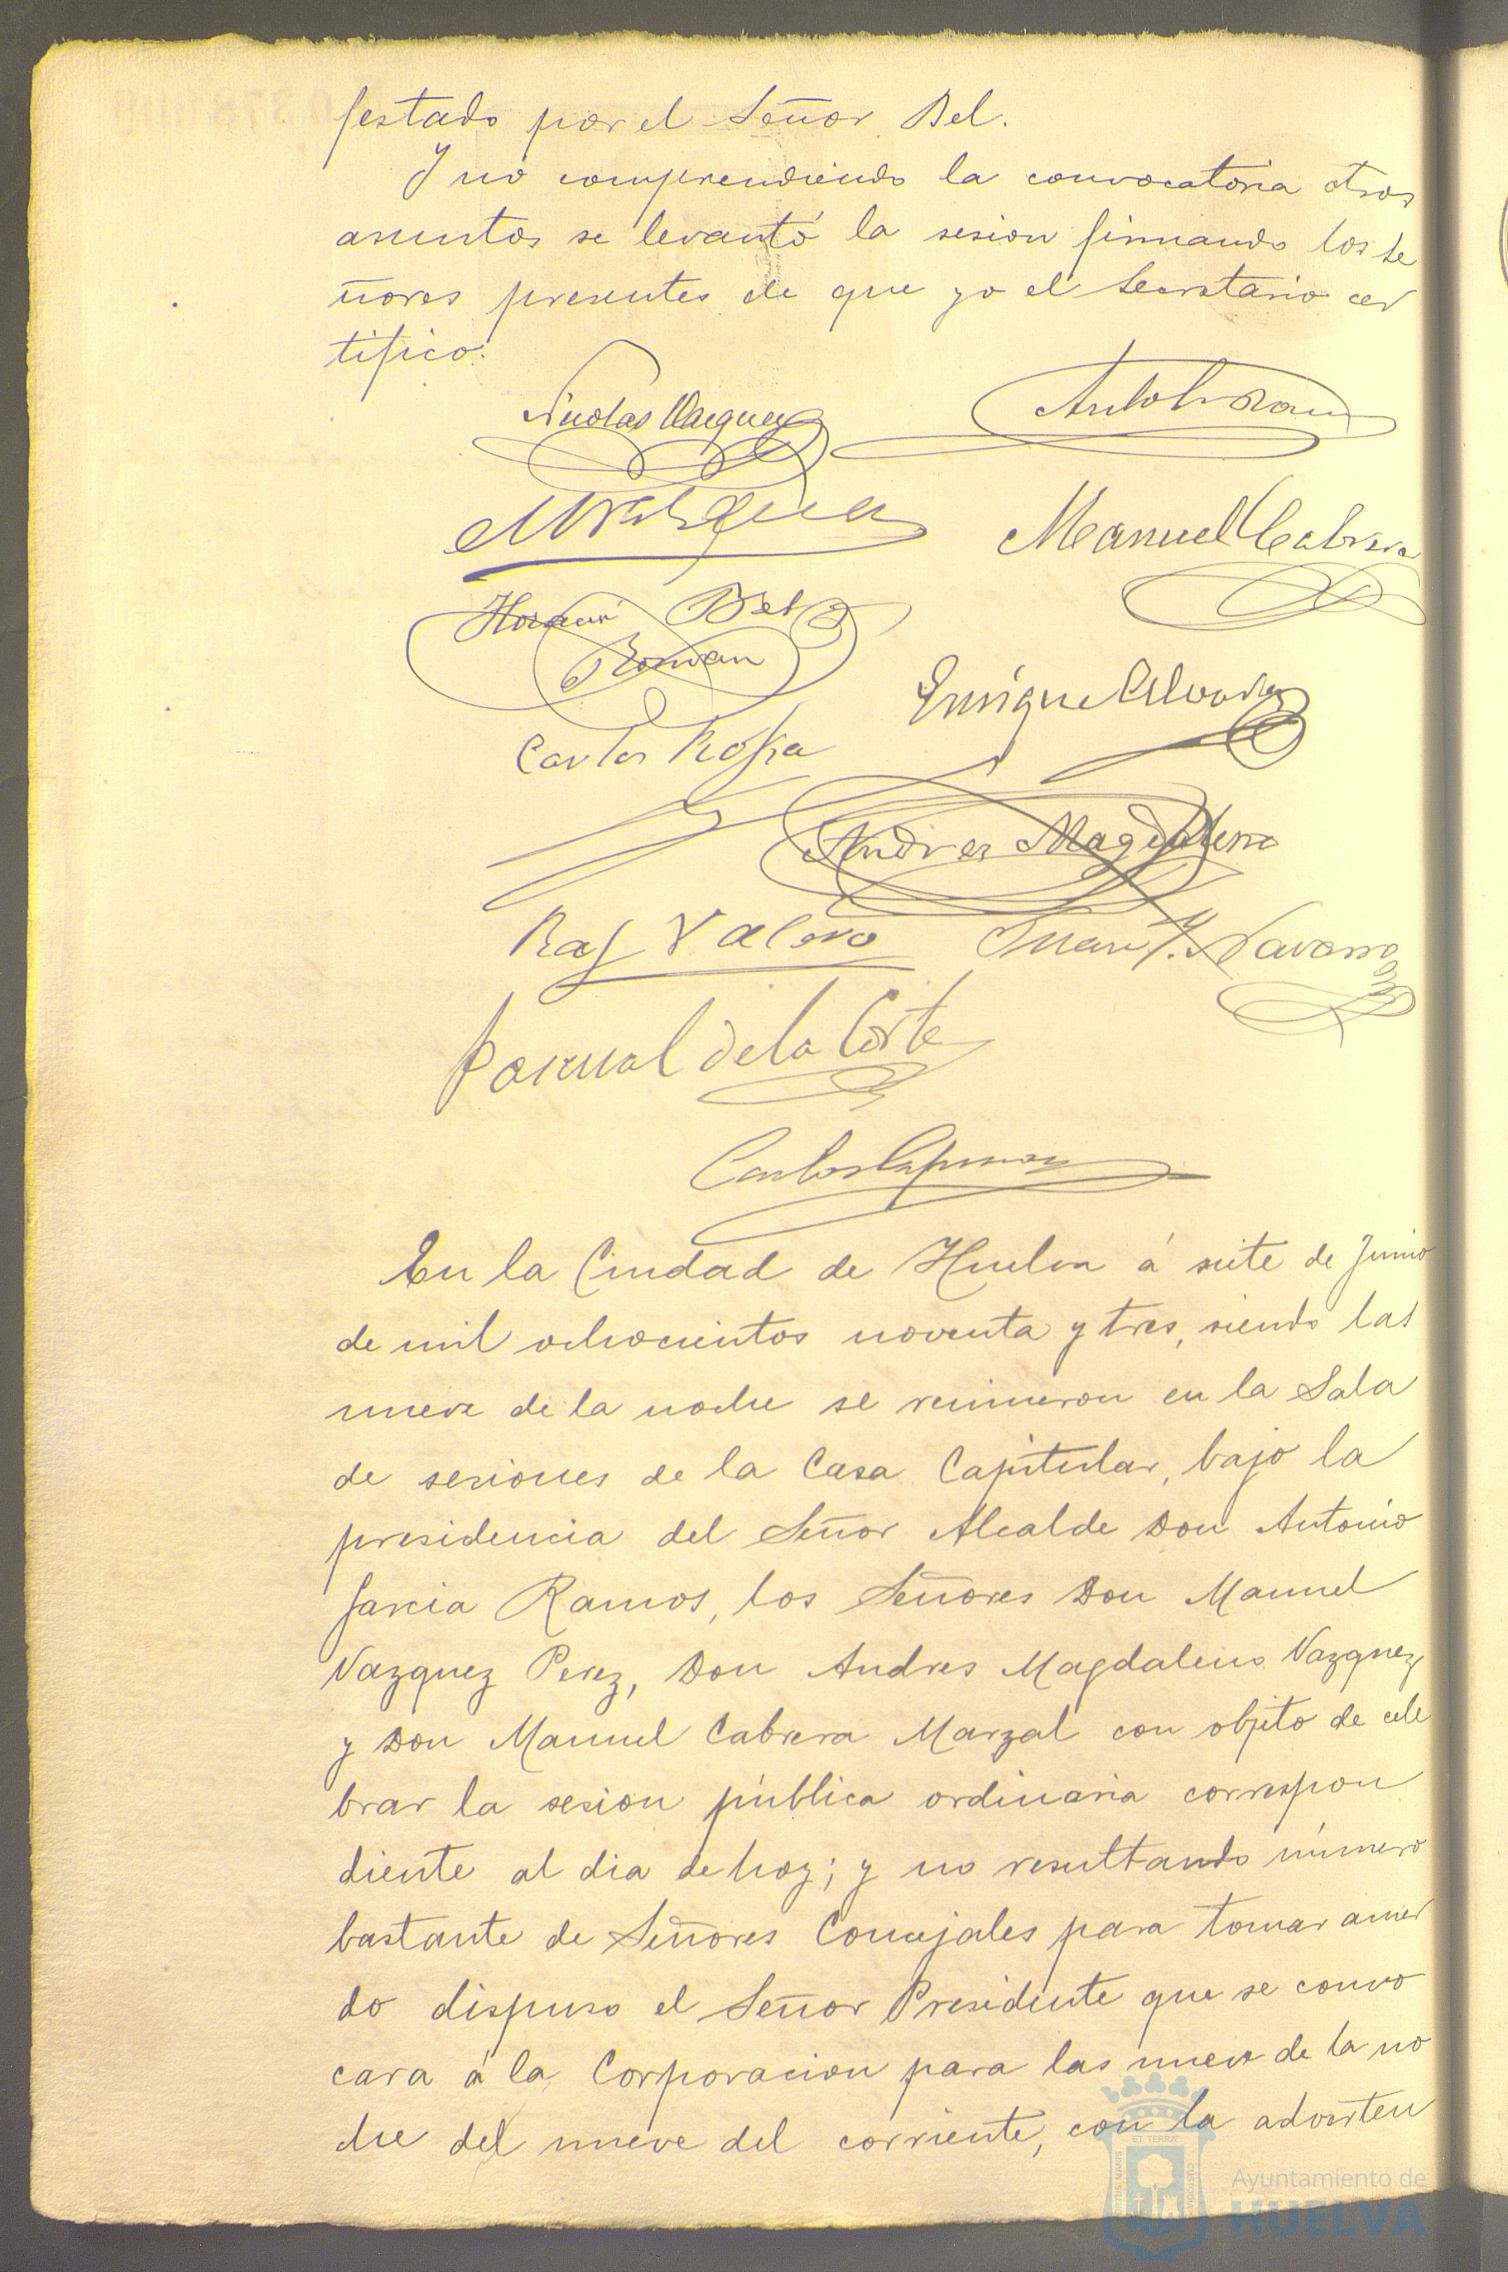 festado por el Señor Bel.
Y no comprendiendo la convocatoria otros
asuntos se levantó la sesion firmando los se
ñores presentes de que yo el Secretario cer
tifico.
Nicolas Vazquez
Manuel Cabrera
Bel
Roman
Enrique
Carlos
Andres Magdaleno
Raf Valero Juan J. Navarro
Pascual de la Corte
Carlos
En la Ciudad de Huelva á siete de Junio
de mil ochocientos noventa y tres, siendo las
nueve de la noche se reunieron en la Sala
de sesiones de la Casa Capitular, bajo la
presidencia del Señor Alcalde Don Antonio
Garcia Ramos, los Señores Don Manuel
Vazquez Perez, Don Andres Magdaleno Vazquez,
y Don Manuel Cabrera Marzal con objeto de cele
brar la sesion pública ordinaria correspon
diente al dia de hoy; y no resultando número
bastante de Señores Concejales para tomar acuer
do dispuso el Señor Presidente que se convo
cara á la Corporacion para las nueve de la no
che del nueve del corriente, con la adverten
Ayuntamiento de
HUELVA